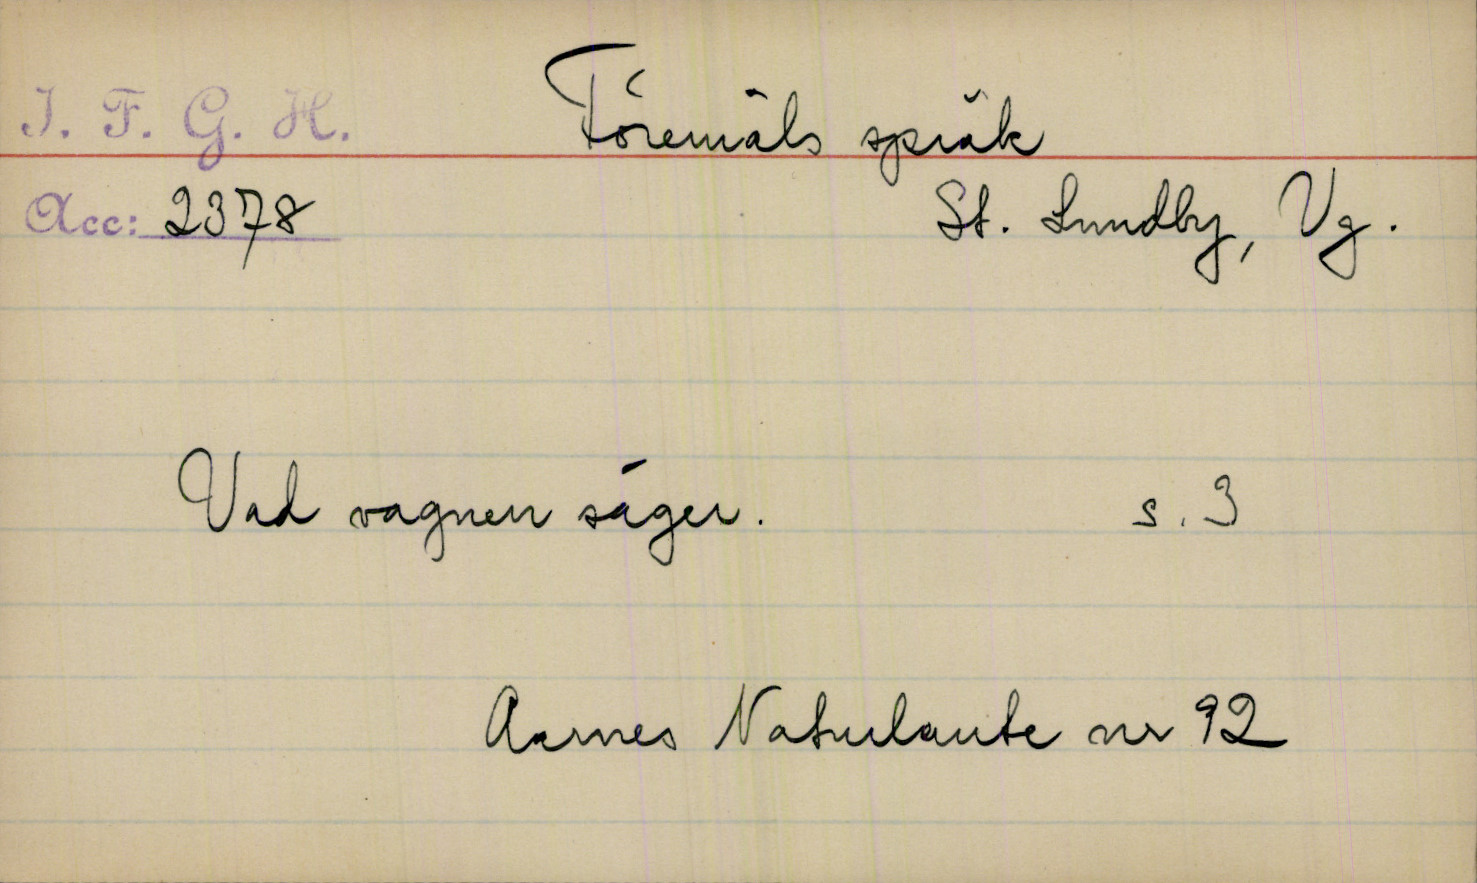 I. F. G. H.
Föremåls språk
Acc: 2378
St. Lundby, Vg.
Vad vagnen säger. s. 3
Aarnes Naturlaute nr 92